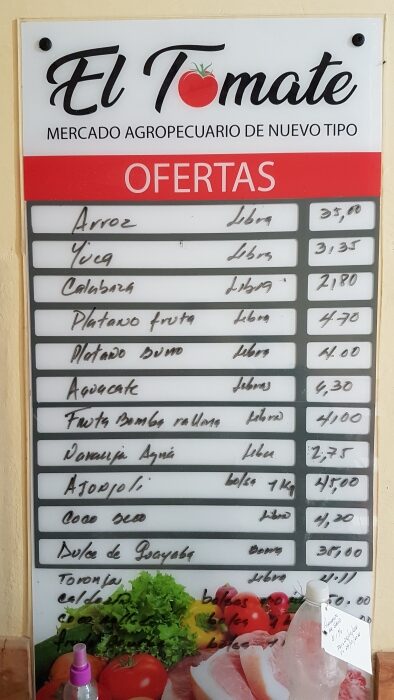 El Tomate
MERCADO AGROPECUARIO DE NUEVO TIPO
OFERTAS
Arroz Libra 35,00
Yuca Libra 3,35
Calabaza Libra 2,80
Platano fruta Libra 4.70
Platano Burro Libra 4.00
Aguacate Libra 6,30
Fruta Bomba Libra 4,00
Naranja Agria Libra 2,75
AJonjoli bolsa 1 Kg 45,00
Coco Seco Libra 4,20
Dulce de Guayaba Barra 38,00
Toronja Libra 4.11
Caldosa bolsas